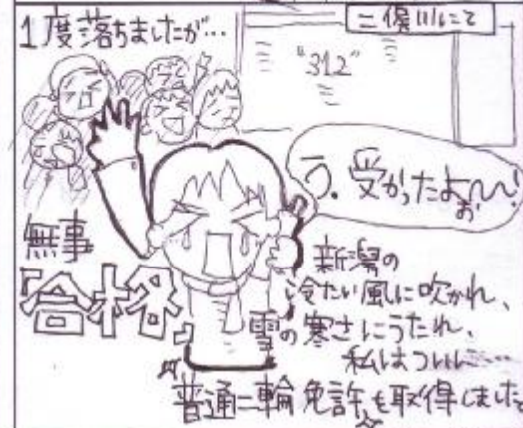 1度落ちましたが…
二俣川にて
"312"
う、受かったよぉ〜!
無事
合格。
新潟の
冷たい風に吹かれ、
雪の寒さにうたれ、
私はついに……
普通二輪免許を取得しました